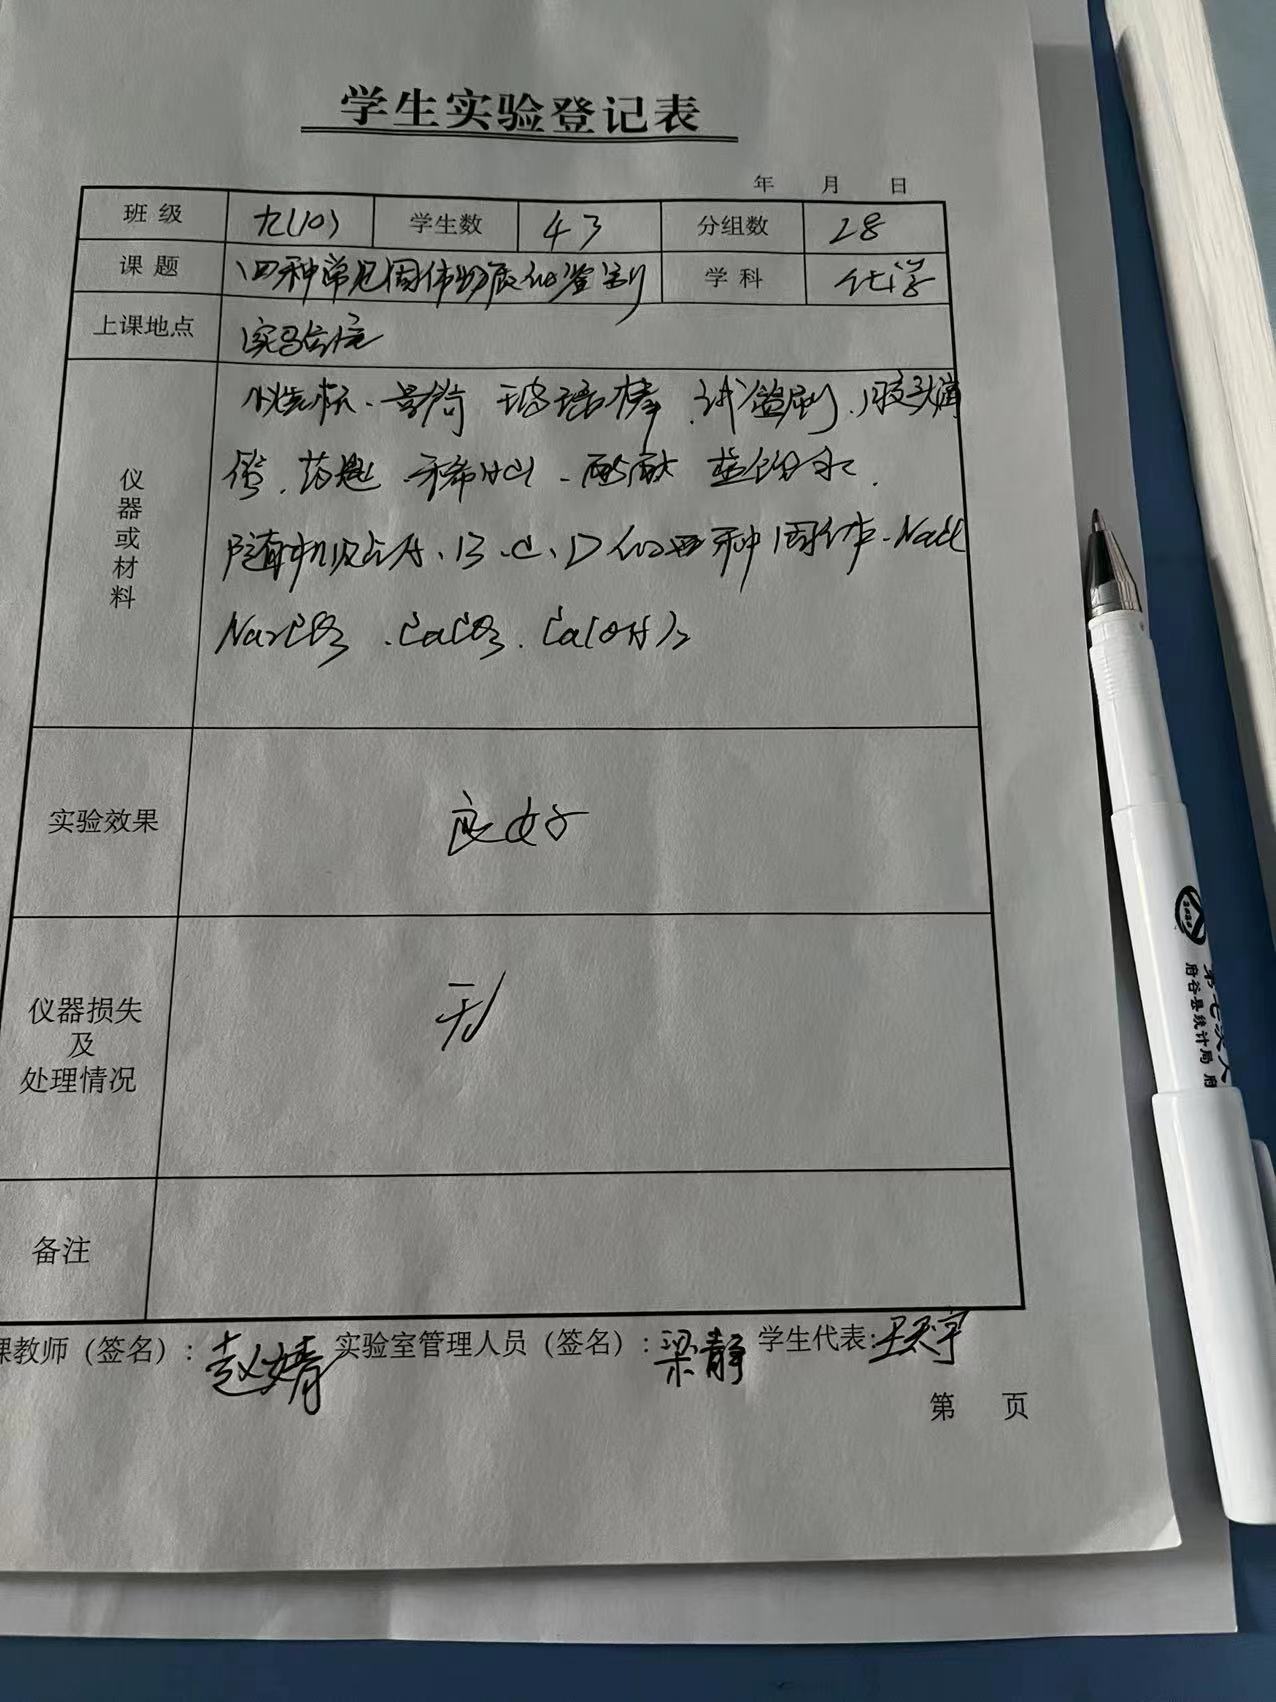 学生实验登记表
年 月 日
班级 九(10) 学生数 43 分组数 28
课题 四种常见固体物质的鉴别 学科 化学
上课地点 实验室
仪器或材料 小烧杯、量筒 玻璃棒、试管刷、胶头滴
管、药匙、稀HCl、酚酞 蒸馏水、
随机贴上A、B、C、D的四种固体、NaCl
Na2CO3、CaCO3、Ca(OH)2
实验效果 良好
仪器损失
及
处理情况
无
备注
课教师（签名）：赵婧 实验室管理人员（签名）：梁静 学生代表:王天宇
第 页
第七次人
府谷县统计局 府